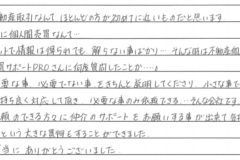 動産取引なんて ほとんどの方が初めてに近いものだと思います
に個人間売買なんて…
ットで情報は得られても、解らない事ばかり… そんな時は不動産個
買サポートPROさんに何度質問したことか…。
要な事、必要でない事をきちんと説明してくださり、小さな事で
持ち良く対応して頂き、必要な事のみ依頼できる…そんな会社です
頼のできる方に仲介のサポートをお願いする事が出来て
という大きな買物もすることができました。
当に ありがとうございました